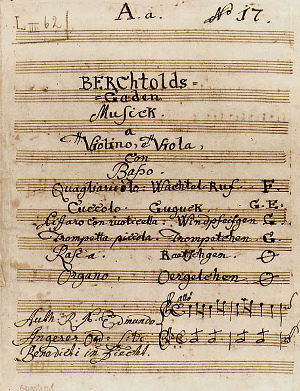 A. a.
No 17.
L III 62
BERChtolds=
=Gaden
Musick.
a
Violino, è Viola,
con
Baßo.
Quagliaricolo. Wachtel-Ruf. F.
Cuccolo. Guguck. G. E.
Zuffaro con ruoticella. Windpfeifgen G.
Trompetta piccola. Trompetchen. G.
Raetschgen.
Organo Oergelchen.
Auth. R. P. Edmundo
Angerer Ord. Sti
Benedicti in Fiecht.
allo